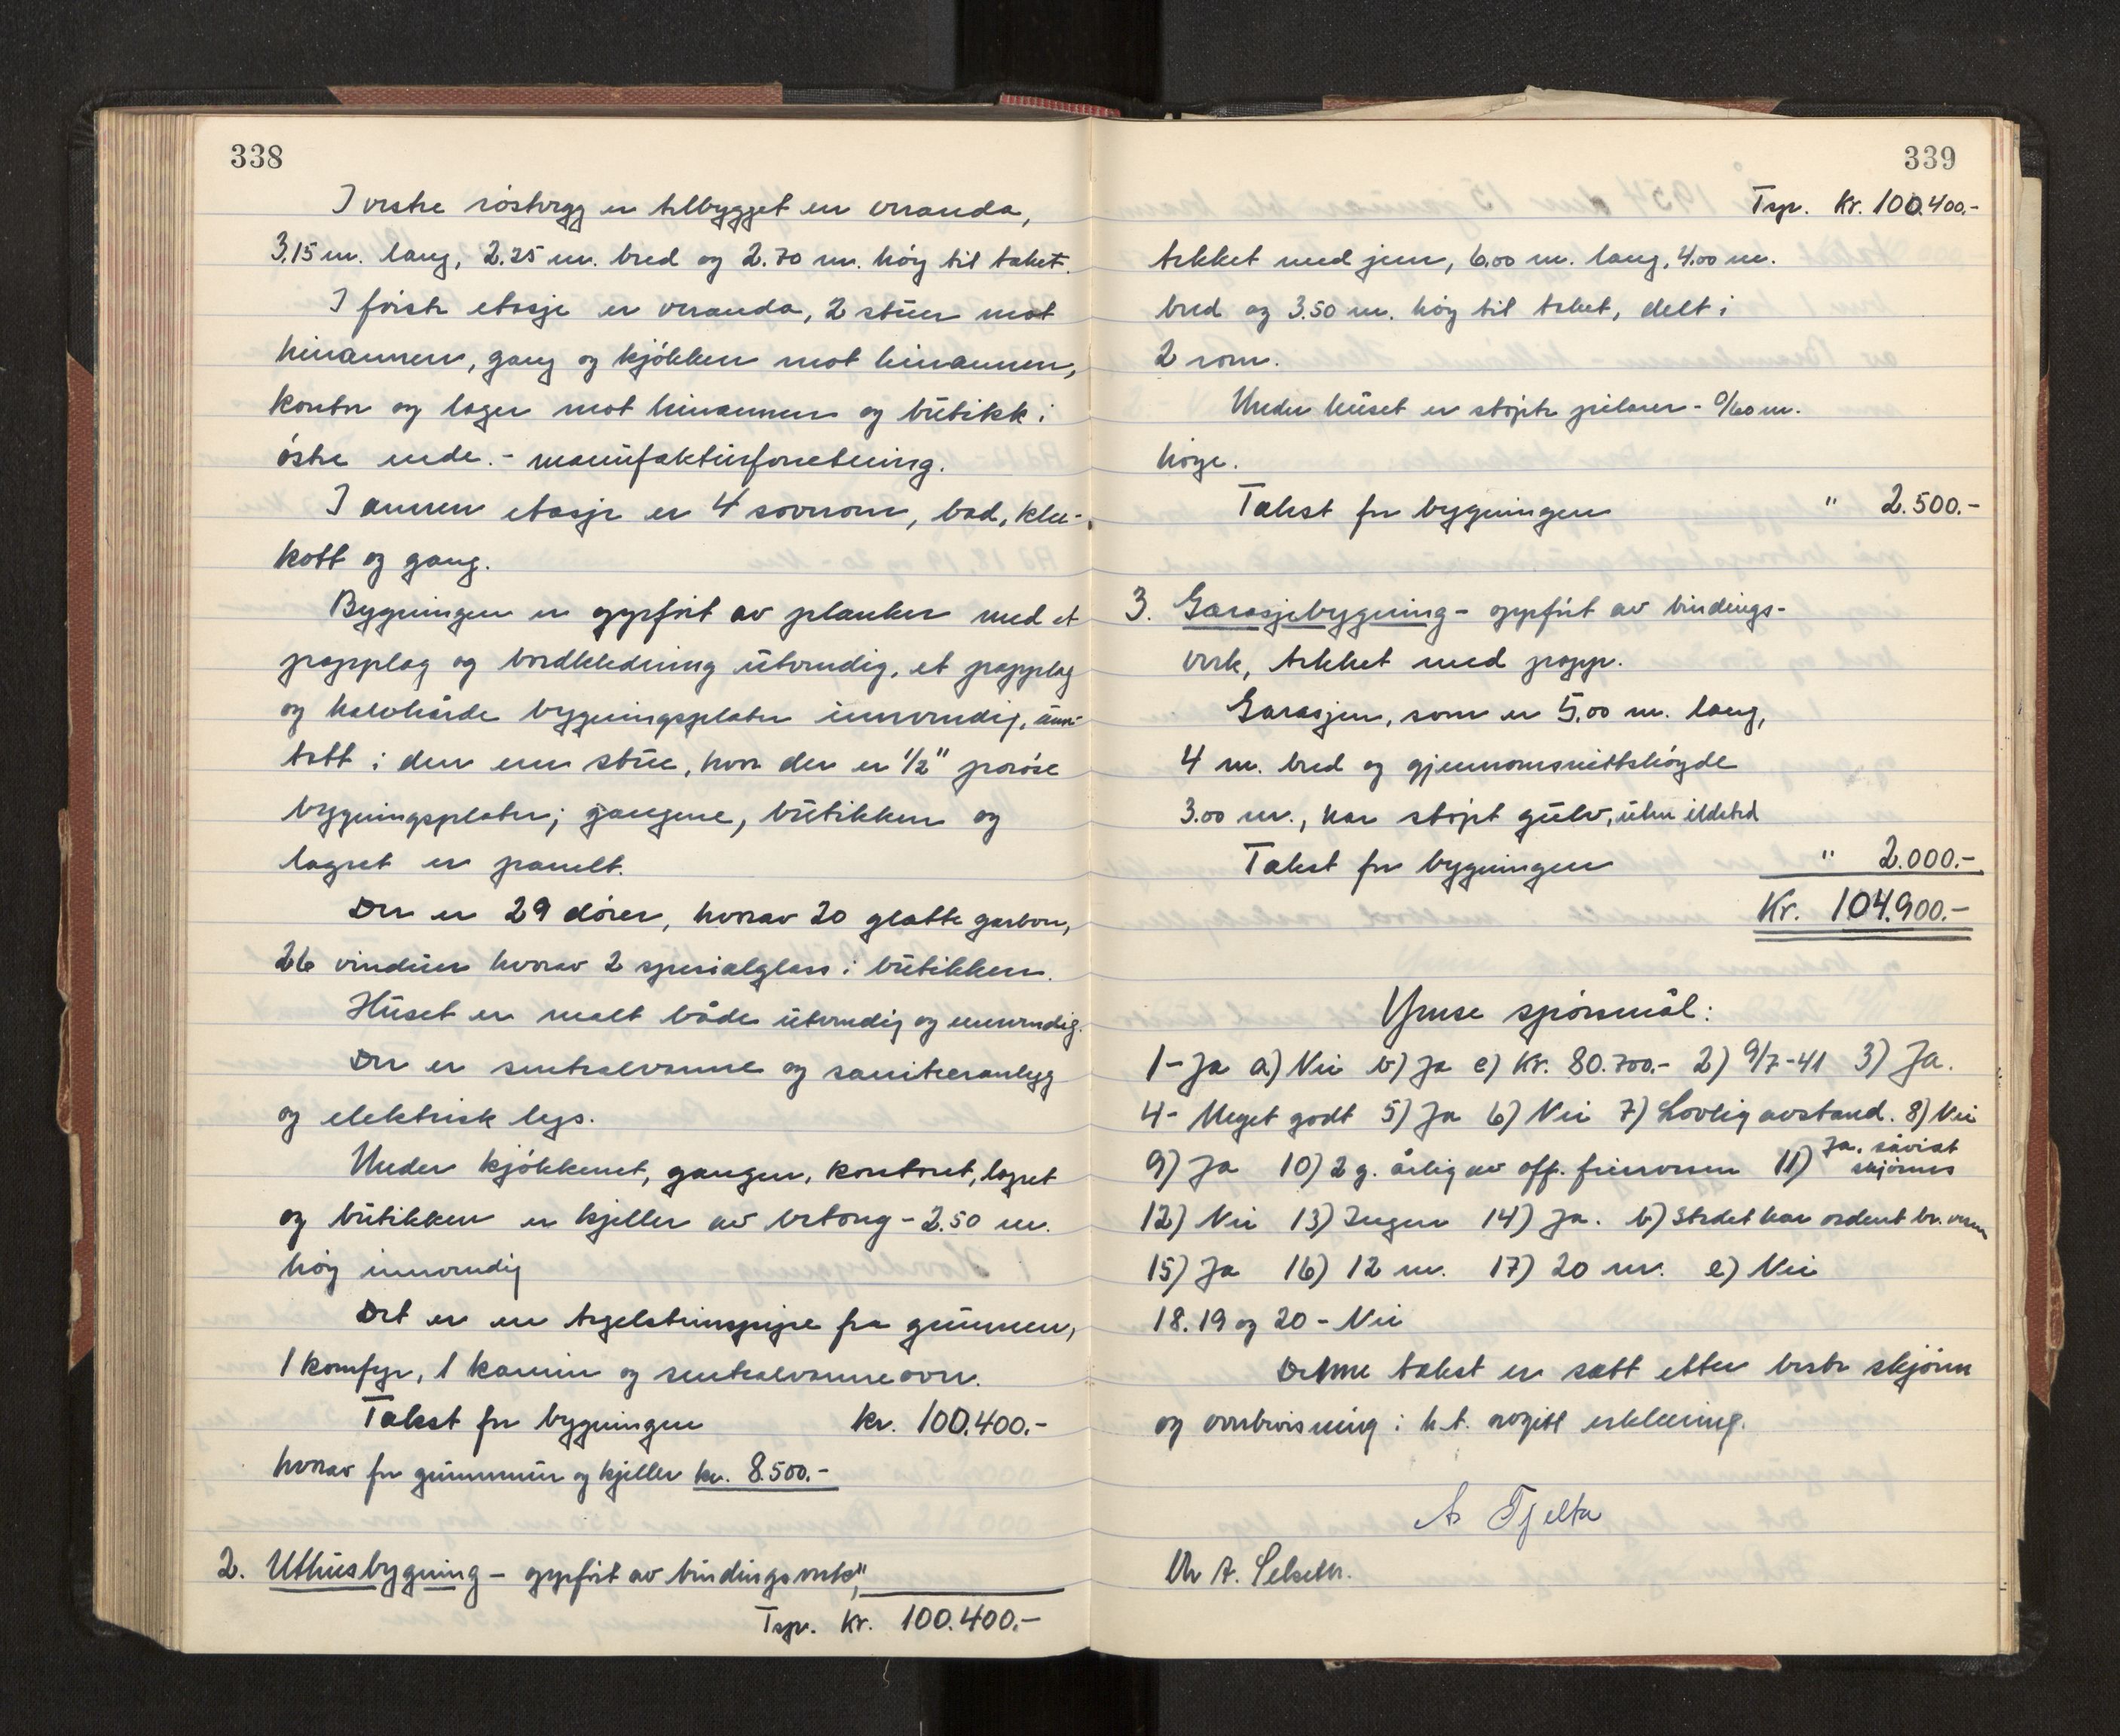 338
I vestre röstvegg er tilbygget en veranda,
3.15 m. lang, 2.25 m. bred og 2.70 m. höy til taket.
I förste etasje er veranda, 2 stuer mot
hinannen, gang og kjökken mot hinannen,
kontor og lager mot hinannen og butikk i
östre ende. - manufakturforretning.
I annen etasje er 4 soverom, bad, kle-
kott og gang.
Bygningen er oppfört av planker med et
papplag og bordkledning utvendig, et papplag
og halvhårde bygningsplater innvendig, unn-
tatt i den ene stue, hvor der er 1/2" poröse
bygningsplater; gangene, butikken og
lagret er panelt.
Der er 29 dörer, hvorav 20 glatte gabon,
26 vinduer hvorav 2 spesialglass i butikken.
Huset er malt både utvendig og innvendig.
Der er sentralvarme og sanitæranlegg
og elektrisk lys.
Under kjökkenet, gangen, kontoret, lagret
og butikken er kjeller av betong - 2.50 m.
höy innvendig
Det er en teglsteinspipe fra grunnen,
1 komfyr, 1 kamin og sentralvarmeovn.
Takst for bygningen kr. 100.400.-
hvorav for grunnmur og kjeller kr. 8.500.-
2. Uthusbygning - oppfört av bindingsverk,
Tsp. Kr. 100.400.-
339
Tsp. Kr. 100.400.-
tekket med jern, 6.00 m. lang, 4.00 m.
bred og 3.50 m. höy til teket, delt i
2 rom.
Under huset er stöpte pilarer - 0/60 m.
höye.
Takst for bygningen " 2.500.-
3. Garasjebygning - oppfört av bindings-
verk, tekket med papp.
Garasjen, som er 5.00 m. lang,
4 m. bred og gjennomsnittshöyde
3.00 m., har stöpt gulv, uten ildsted
Takst for bygningen " 2.000.-
Kr. 104.900.-
Ymse spörsmål:
1- Ja a) Nei b) Ja c) Kr. 80.700.- 2) 9/7-41 3) Ja.
4- Meget godt 5) Ja 6) Nei 7) Lovlig avstand. 8) Nei
9) Ja 10) 2 g. årlig av off. feiervesen 11) Ja, såvist skjönnes
12) Nei 13) Ingen 14) Ja. b) Stedet har ordent br. vern
15) Ja 16) 12 m. 17) 20 m. e) Nei
18. 19 og 20 - Nei
Denne takst er satt etter beste skjönn
og overbevisning i h.t. avgitt erklæring.
A. Tjelta
Chr A. Selseth.